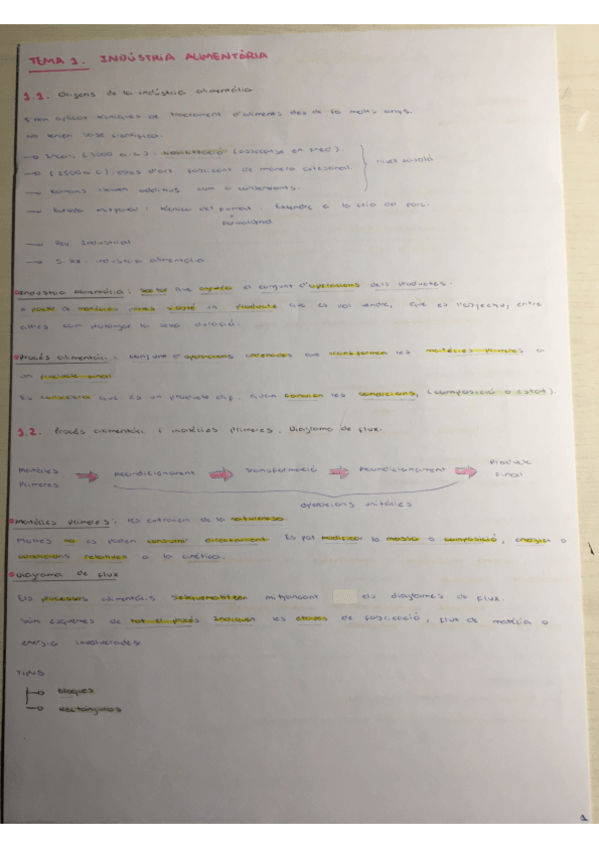 TEMA 1. INDÚSTRIA ALIMENTÀRIA
1.1. Orígens de la indústria alimentària
tractament d'aliments des de fa molts anys.
No tenien base científica.
→ Inques (3000 a.c.): liofilització (assecatge en fred).
→ (2500 a.c): de manera artesanal.
nivell casolà
→ Romans additius com a condiments.
→ Europa tècnica del fumat.
→ Rev. Industrial
→ S. XX: indústria alimentària.
Indústria alimentària: Sector que agrupa el conjunt d'operacions dels productes.
A partir de matèries primes s'obté un producte que es vol vendre, que es l'específic, entre
altres com prolongar la seva duració.
Procés alimentari: conjunt d'operacions ordenades que transformen les matèries primeres a
un producte final
Es considera que és un producte dif. quan canvien les condicions, (composició o estat).
1.2. Procés alimentari i matèries primeres. Diagrama de flux.
Matèries Primeres
Acondicionament
Transformació
Acondicionament
Producte Final
operacions unitàries
Matèries primeres: les extraiem de la naturalesa.
Moltes no es poden consumir directament. Es pot modificar la massa o composició, energia o
condicions relatives a la cinètica.
Diagrama de flux
Els processos alimentaris s'esquematitzen mitjançant els diagrames de flux.
Són esquemes de tot el procés. Indiquen les etapes de fabricació, flux de matèria o
energia involucrades
TIPUS
→ Bloques
→ Rectángulos
1